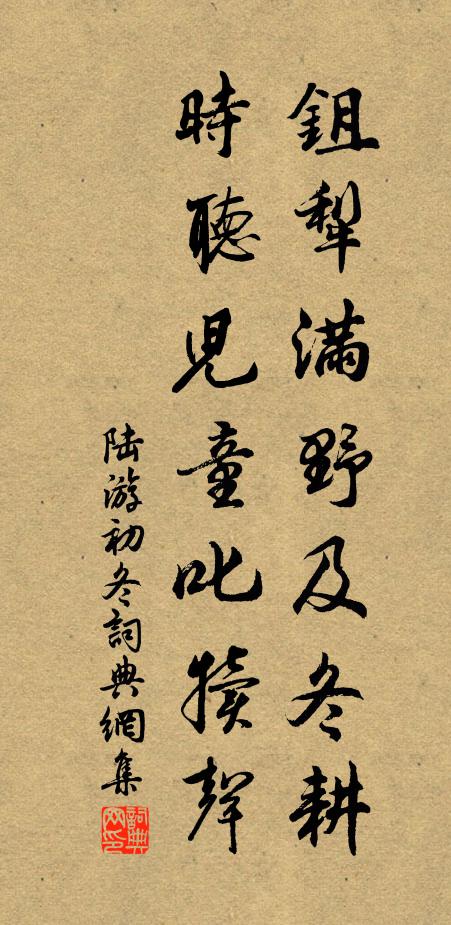 鉏犁滿野及冬耕
時聽兒童叱犢聲
陸游初冬詞典網集
詞典網印